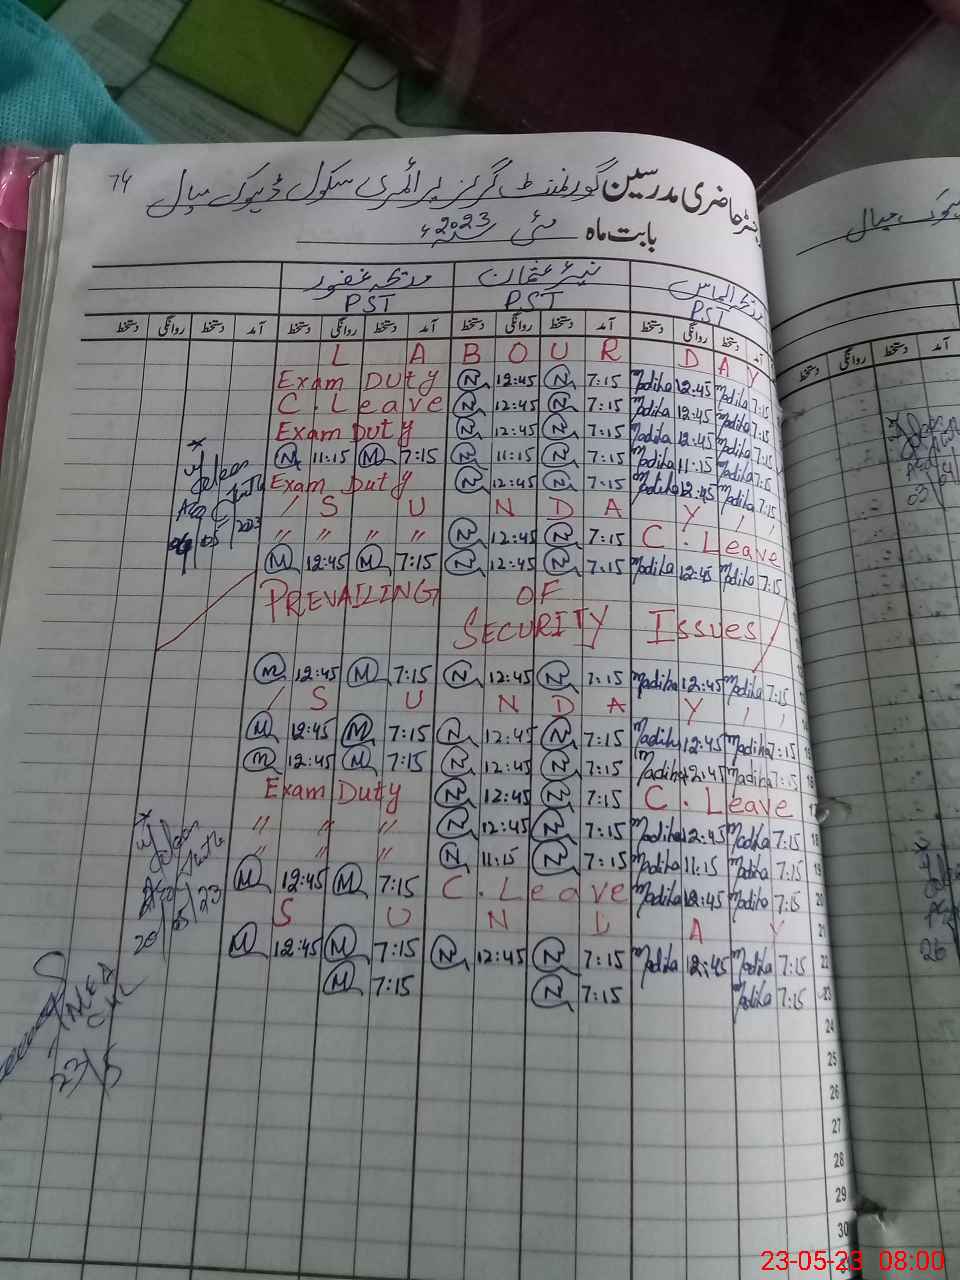 74
حاضری مدرسین گورنمنٹ گرلز پرائمری سکول ڈہوک سیال
بابت ماہ مئی سنہ 2023ء
مدیحہ الماس نیئر عثمان مدیحہ غفور
PST PST PST
آمد دستخط روانگی دستخط آمد دستخط روانگی دستخط آمد دستخط روانگی دستخط آمد دستخط روانگی دستخط
L A B O U R D A Y
Exam Duty N 12:45 N 7:15 Madiha 12:45 Madiha 7:15
C. Leave N 12:45 N 7:15 Madiha 12:45 Madiha 7:15
Exam Duty N 12:45 N 7:15 Madiha 12:45 Madiha 7:15
M 11:15 M 7:15 N 11:15 N 7:15 Madiha 11:15 Madiha 7:15
Exam Duty N 12:45 N 7:15 Madiha 12:45 Madiha 7:15
S U N D A Y
" " " " N 12:45 N 7:15 C. Leave
M 12:45 M 7:15 N 12:45 N 7:15 Madiha 12:45 Madiha 7:15
PREVAILING OF
SECURITY Issues
M 12:45 M 7:15 N 12:45 N 7:15 Madiha 12:45 Madiha 7:15
S U N D A Y
M 12:45 M 7:15 N 12:45 N 7:15 Madiha 12:45 Madiha 7:15
M 12:45 M 7:15 N 12:45 N 7:15 Madiha 12:45 Madiha 7:15
Exam Duty N 12:45 N 7:15 C. Leave
" " " N 12:45 N 7:15 Madiha 12:45 Madiha 7:15 18
" " " N 11:15 N 7:15 Madiha 11:15 Madiha 7:15 19
M 12:45 M 7:15 C. Leave Madiha 12:45 Madiha 7:15 20
S U N D A Y 21
M 12:45 M 7:15 N 12:45 N 7:15 Madiha 12:45 Madiha 7:15 22
M 7:15 N 7:15 Madiha 7:15 23
24
25
26
27
28
29
30
23/5
آمد
دستخط
26
23-05-23 08:00